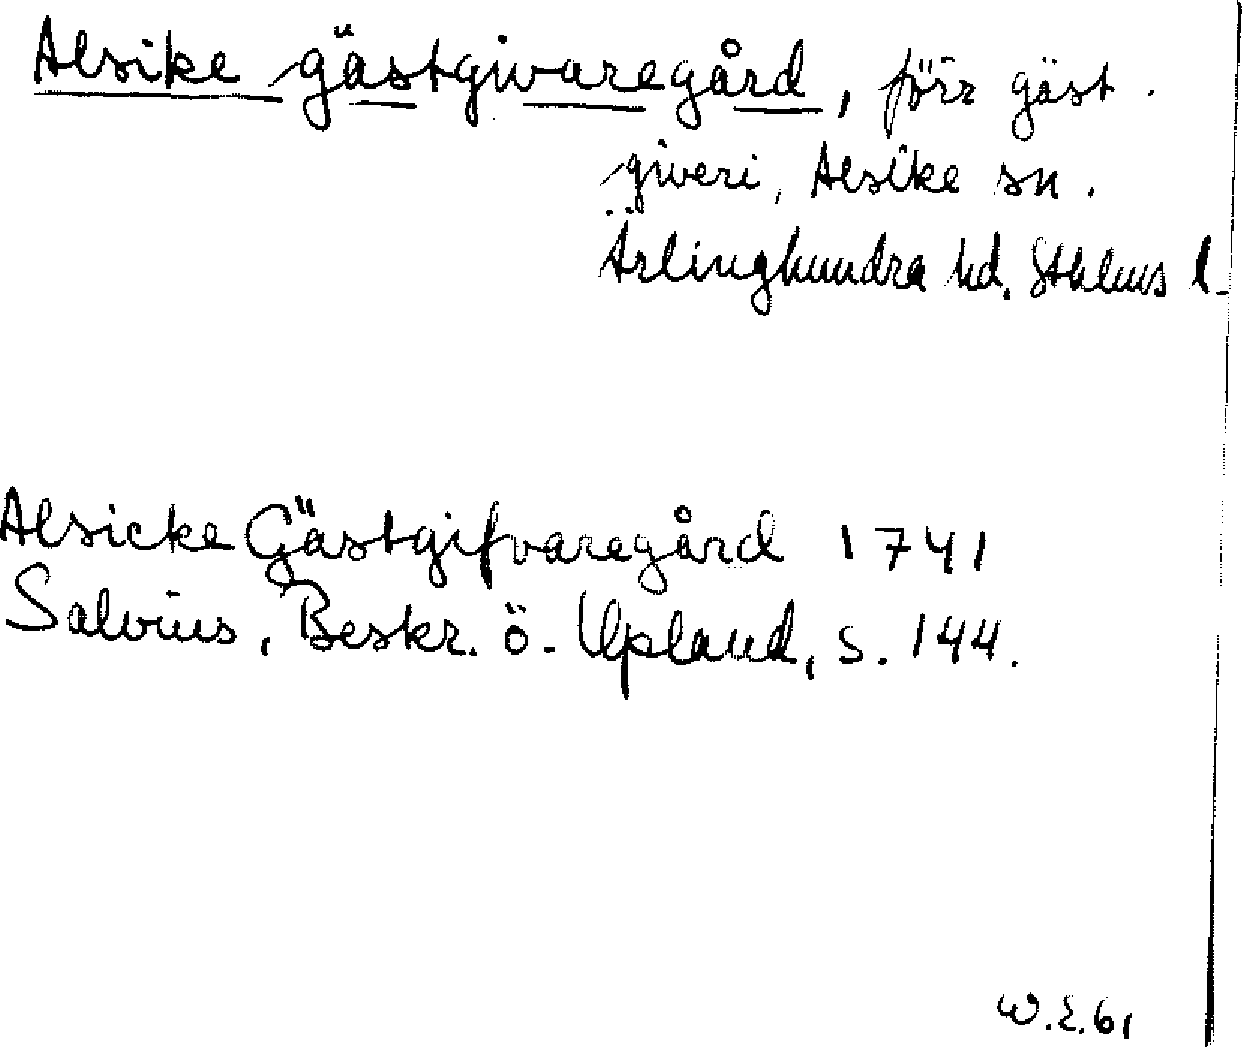 Alsike gästgivaregård, förr gäst-
giveri, Alsike sn.
Ärlinghundra hd. Sthlms l.
Alsicke Gästgifvaregård 1741
Salvius, Beskr. ö. Upland, s. 144.
W.E.61